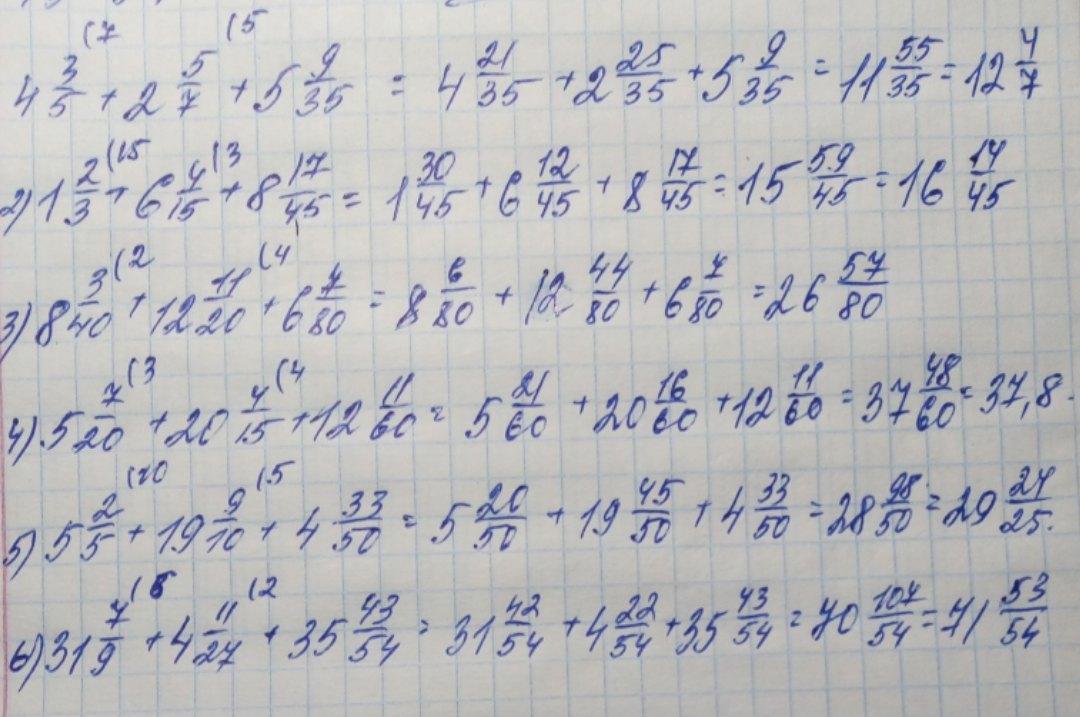 4 3/5 (7 + 2 5/7 (5 + 5 9/35 = 4 21/35 + 2 25/35 + 5 9/35 = 11 55/35 = 12 4/7
2) 1 2/3 (15 + 6 4/15 (3 + 8 17/45 = 1 30/45 + 6 12/45 + 8 17/45 = 15 59/45 = 16 14/45
3) 8 3/40 (2 + 12 11/20 (4 + 6 7/80 = 8 6/80 + 12 44/80 + 6 7/80 = 26 57/80
4) 5 7/20 (3 + 20 4/15 (4 + 12 11/60 = 5 21/60 + 20 16/60 + 12 11/60 = 37 48/60 = 37,8.
5) 5 2/5 (10 + 19 9/10 (5 + 4 33/50 = 5 20/50 + 19 45/50 + 4 33/50 = 28 98/50 = 29 24/25.
6) 31 7/9 (6 + 4 11/27 (2 + 35 43/54 = 31 42/54 + 4 22/54 + 35 43/54 = 70 107/54 = 71 53/54